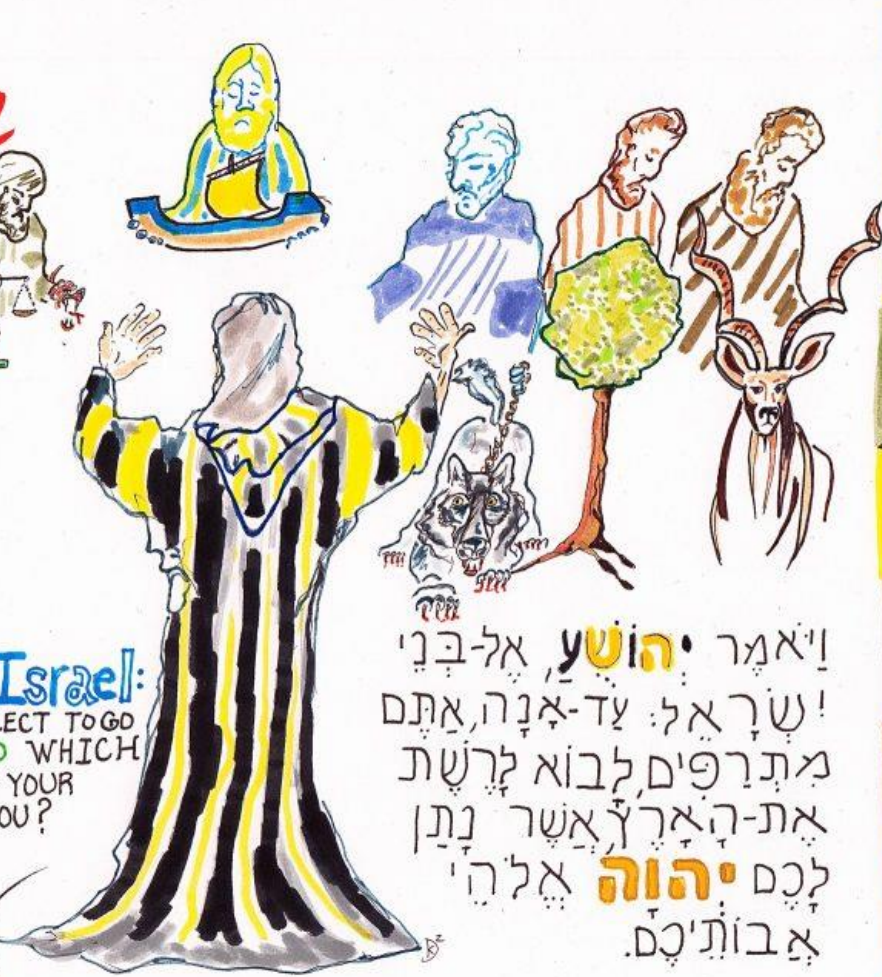 Israel:
LECT TO GO
WHICH
YOUR
OU?
וַיֹּאמֶר יְהוֹשֻׁעַ, אֶל-בְּנֵי
יִשְׂרָאֵל: עַד-אָנָה, אַתֶּם
מִתְרַפִּים, לָבוֹא לָרֶשֶׁת
אֶת-הָאָרֶץ, אֲשֶׁר נָתַן
לָכֶם יְהוָה אֱלֹהֵי
אֲבוֹתֵיכֶם.